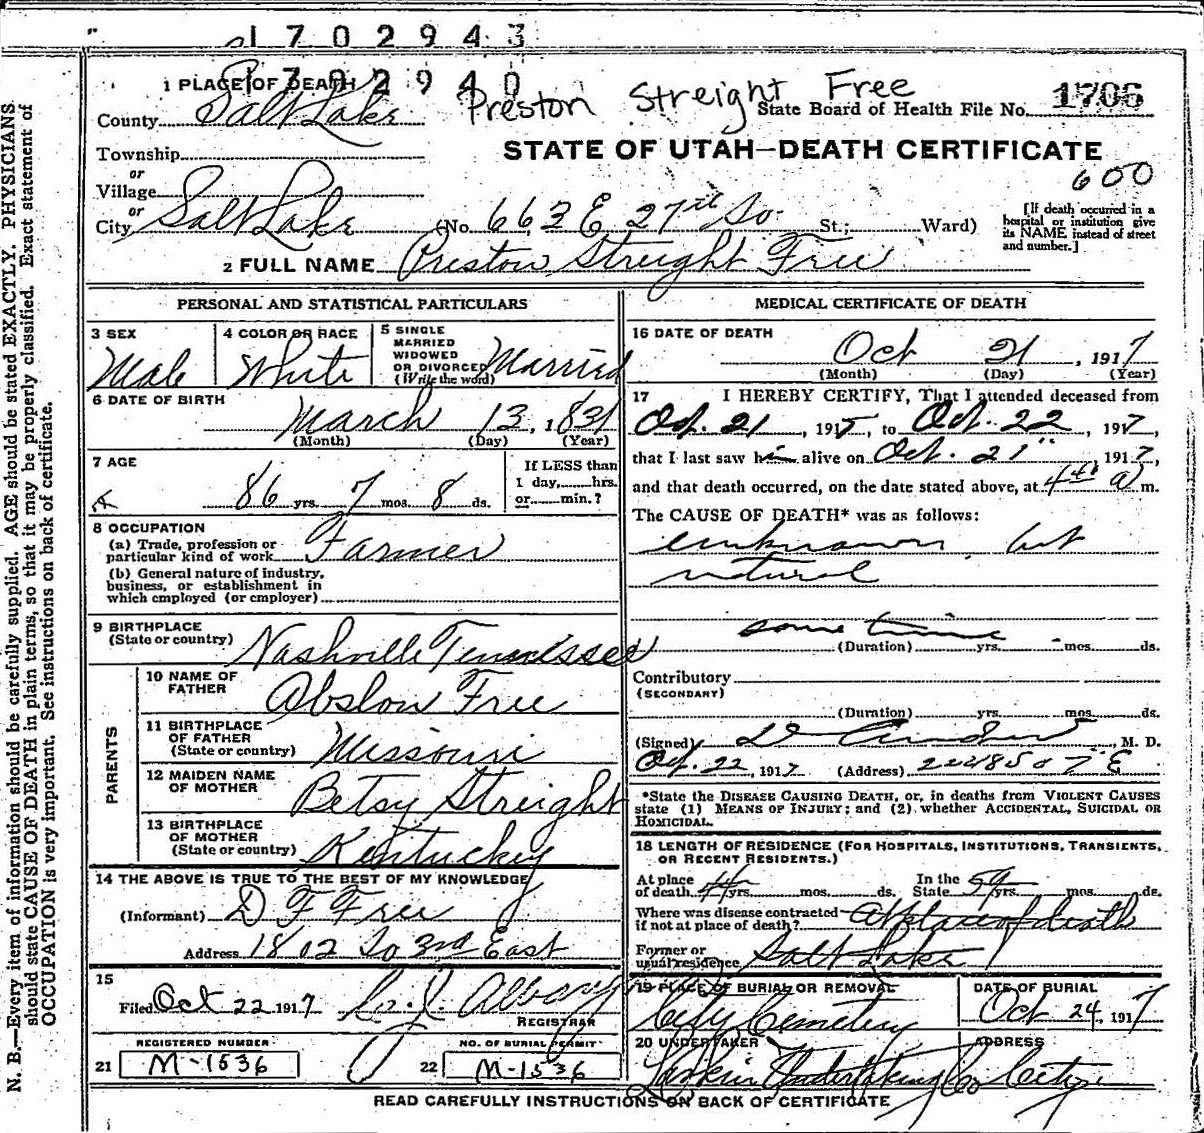 1702943
1702940
1 PLACE OF DEATH
Preston Streight Free
County Salt Lake
State Board of Health File No. 1706
STATE OF UTAH—DEATH CERTIFICATE
Township
or
Village
600
or
City Salt Lake (No. 663 E 27th So. St.; Ward)
[If death occurred in a hospital or institution give its NAME instead of street and number.]
2 FULL NAME Preston Streight Free
PERSONAL AND STATISTICAL PARTICULARS
3 SEX
Male
4 COLOR OR RACE
White
5 SINGLE
MARRIED
WIDOWED
OR DIVORCED
(Write the word)
Married
6 DATE OF BIRTH
March 13, 1831
(Month) (Day) (Year)
7 AGE
86 yrs. 7 mos. 8 ds.
If LESS than
1 day, hrs.
or min.?
8 OCCUPATION
(a) Trade, profession or
particular kind of work Farmer
(b) General nature of industry,
business, or establishment in
which employed (or employer)
9 BIRTHPLACE
(State or country) Nashville Tennessee
PARENTS
10 NAME OF
FATHER Abslow Free
11 BIRTHPLACE
OF FATHER
(State or country) Missouri
12 MAIDEN NAME
OF MOTHER Betsy Streight
13 BIRTHPLACE
OF MOTHER
(State or country) Kentucky
14 THE ABOVE IS TRUE TO THE BEST OF MY KNOWLEDGE
(Informant) D F Free
Address 1802 So 3rd East
15
Filed Oct 22 1917
REGISTRAR
REGISTERED NUMBER
21 M-1536
NO. OF BURIAL PERMIT
22 M-1536
MEDICAL CERTIFICATE OF DEATH
16 DATE OF DEATH
Oct 21, 1917
(Month) (Day) (Year)
17 I HEREBY CERTIFY, That I attended deceased from
Oct. 21, 1917, to Oct. 22, 1917,
that I last saw him alive on Oct. 21, 1917,
and that death occurred, on the date stated above, at 4 a m.
The CAUSE OF DEATH* was as follows:
unknown but
natural
some time
(Duration) yrs. mos. ds.
Contributory
(SECONDARY)
(Duration) yrs. mos. ds.
(Signed) M. D.
Oct. 22, 1917 (Address)
*State the DISEASE CAUSING DEATH, or, in deaths from VIOLENT CAUSES
state (1) MEANS OF INJURY; and (2) whether ACCIDENTAL, SUICIDAL OR
HOMICIDAL.
18 LENGTH OF RESIDENCE (FOR HOSPITALS, INSTITUTIONS, TRANSIENTS,
OR RECENT RESIDENTS.)
At place
of death 44 yrs. mos. ds.
In the
State 59 yrs. mos. ds.
Where was disease contracted
if not at place of death? at place of death
Former or
usual residence Salt Lake
19 PLACE OF BURIAL OR REMOVAL
City Cemetery
DATE OF BURIAL
Oct 24, 1917
20 UNDERTAKER
Larkin Undertaking Co
ADDRESS
City
READ CAREFULLY INSTRUCTIONS ON BACK OF CERTIFICATE
N. B.—Every item of information should be carefully supplied. AGE should be stated EXACTLY. PHYSICIANS
should state CAUSE OF DEATH in plain terms, so that it may be properly classified. Exact statement of
OCCUPATION is very important. See instructions on back of certificate.